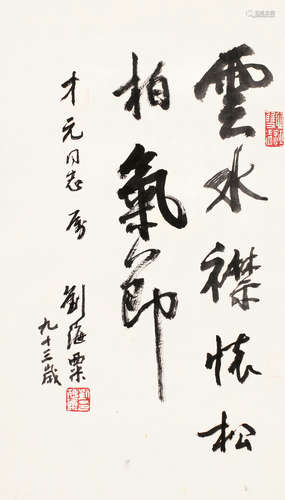 雲水襟懷松
柏氣節
才元同志属
劉海粟
九十三歲